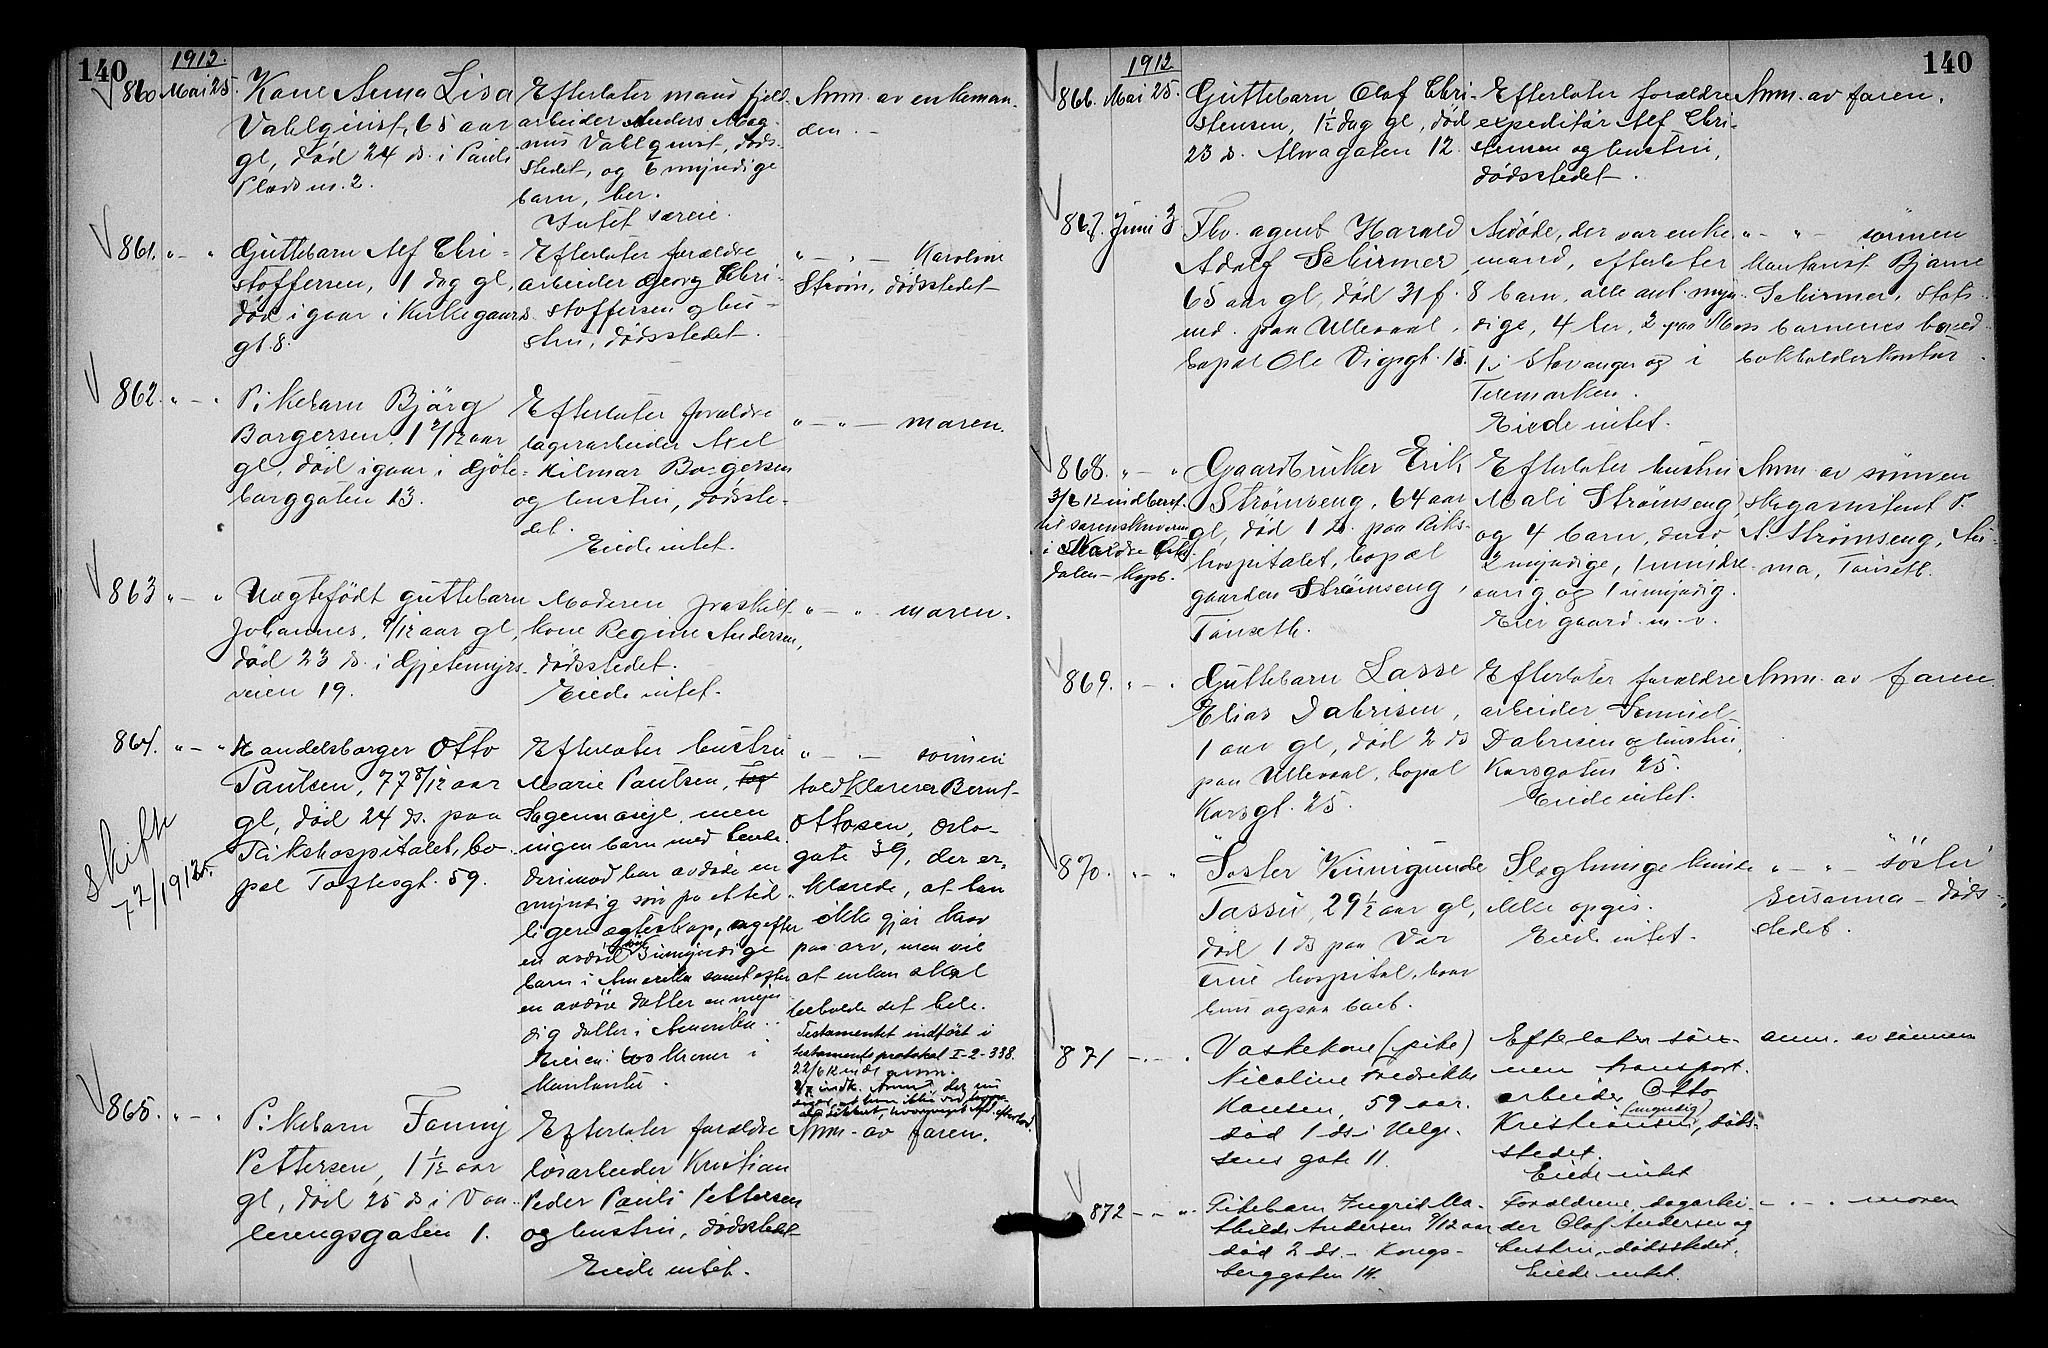 140
1912.
860 Mai 25.
Kone Anna Lisa
Vahlqinst, 65 aar
gl, död 24 ds. i Pauls
Plads nr. 2.
Efterlater mand fjeld
arbeider Anders Mag-
nus Vahlqinst, døds-
stedet, og 6 myndige
barn, her.
Intet særeie.
Anm. av enkeman-
den. -
861. " - "
Guttebarn Alf Chri-
stoffersen, 1 dag gl,
död igaar i Kirkegaards
gt. 8.
Efterlater forældre
arbeider Georg Chri-
stoffersen og hu-
stru, dödsstedet.
" - " - Karoline
Strøm, dödsstedet
862. " - "
Pikebarn Bjørg
Borgersen 1 2/12 aar
gl, död igaar i Gjöte-
borggaten 13.
Efterlater forældre
lagerarbeider Axel
Hilmar Borgersen
og hustru, dödsste-
det.
Eiede intet.
" - " - moren.
863 " - "
Uægtefödt guttebarn
Johannes, /12 aar gl,
död 23 ds. i Gjetemyrs-
veien 19.
Moderen fraskilt
kone Regine Andersen,
dödsstedet.
Eiede intet.
" - " - moren.
864. " - "
skifte
7 2/1912
Handelsborger Otto
Paulsen, 77 8/12 aar
gl, död 24 ds. paa
Rikshospitalet, bo-
pæl Toftesgt. 59.
Efterlater hustru
Marie Paulsen,
Sagennæsje, men
ingen barn med hende.
Derimod har avdøde en
myndig søn fra et tid-
ligere ægteskap, og efter
en avdød søn umyndige
barn i Amerika samt efter
en avdöd datter en myn-
dig datter i Amerika.
Eieren: kroner i
kontanter.
" - " - sönnen
toldklarerer Bernt
Ottosen, Oslo-
gate 39, der er-
klærede, at han
ikke gjør krav
paa arv, men vil
at enken skal
beholde det hele.
Testamentet indfört i
testamentsprotokol I-2-338.
865. " - "
Pikebarn Fanny
Pettersen, 1 1/12 aar
gl, död 25 ds i Vaa-
lerengsgaten 1.
Efterlater forældre
løsarbeider Kristian
Peder Pauli Pettersen
og hustru, dödsstedet
Eiede intet.
Anm. av faren.
140
1912
866. Mai 25.
Guttebarn Olaf Chri-
stensen, 1½ dag gl, död
23 ds. Almagaten 12.
Efterlater forældre
expeditør Alf Chri-
stensen og hustru,
dödsstedet.
Anm. av faren.
867. Juni 3
Fhv. agent Harald
Adolf Schirmer,
65 aar gl, död 31 f.
md. paa Ullevaal,
bopæl Ole Vigsgt. 15.
Avdöde, der var enke-
mand, efterlater
8 barn, alle ant. myn-
dige, 4 her, 2 paa Moss
1 i Stavanger og i
Telemarken.
Eiede intet.
" - " - sönnen
kontorist Bjarne
Schirmer, Stats-
banernes hoved-
bokholderkontor.
868. " - "
3/6 12 indberet.
til sorenskriveren
i Nordre Öster-
dalen - Kopb.
Gaardbruker Erik
Strømseng, 64 aar
gl, död 1 ds. paa Riks-
hospitalet, bopæl
gaarden Strømseng,
Tönseth.
Efterlater hustru
Mali Strømseng
og 4 barn, derav
2 myndige, 1 mindre-
aarig og 1 umyndig.
Eier gaard m. v.
Anm. av sönnen
skogassistent P.
A. Strømseng, An-
ma, Tönseth.
869. " - "
Guttebarn Lasse
Elias Dabrisen,
1 aar gl, död 2 ds
paa Ullevaal, bopæl
Korsgt. 25.
Efterlater forældre
arbeider Samuel
Dabrisen og hustru,
Korsgaten 25.
Eiede intet.
Anm. av faren.
870. " - "
Søster Kunigunde
Tassu, 29½ aar gl,
död 1 ds paa Vor
Frue hospital, hvor
hun ogsaa bort.
Slegtninge kunde
ikke opges.
Eiede intet.
" - " - söster
Susanna - döds-
stedet.
871 - " -
Vaskekone (pike)
Nicoline Fredrikke
Hansen, 59 aar.
död 1 ds i Helge-
sens gate 11.
Efterlater søn-
nen transport-
arbeider Otto
Kristiansen (myndig), döds-
stedet.
Eiede intet
anm. av sönnen
872 - " -
Pikebarn Ingrid Ma-
thilde Andersen 9/12 aar
död 2 ds. - Kongs-
berggaten 14.
Forældrene, sagarbei-
der Olaf Andersen og
hustru, dödsstedet.
Eiede intet.
- " - moren